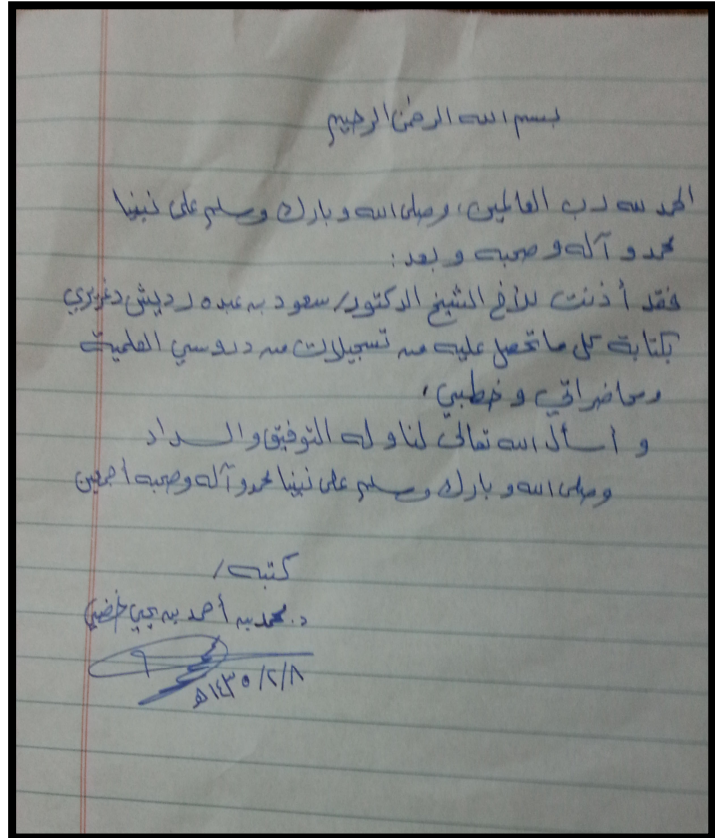 بسم الله الرحمن الرحيم
الحمد لله رب العالمين، وصلى الله وبارك وسلم على نبينا
محمد وآله وصحبه وبعد:
فقد أذنت للأخ الشيخ الدكتور/ سعود بن عبده رديش دغريري
بكتابة كل ما تحصل عليه من تسجيلات من دروسي العلمية
ومحاضراتي وخطبي،
وأسأل الله تعالى لنا وله التوفيق والسداد
وصلى الله وبارك وسلم على نبينا محمد وآله وصحبه أجمعين
كتبه/
د. محمد بن أحمد بن يحيى خضي
١٤٣٥/٢/٨هـ